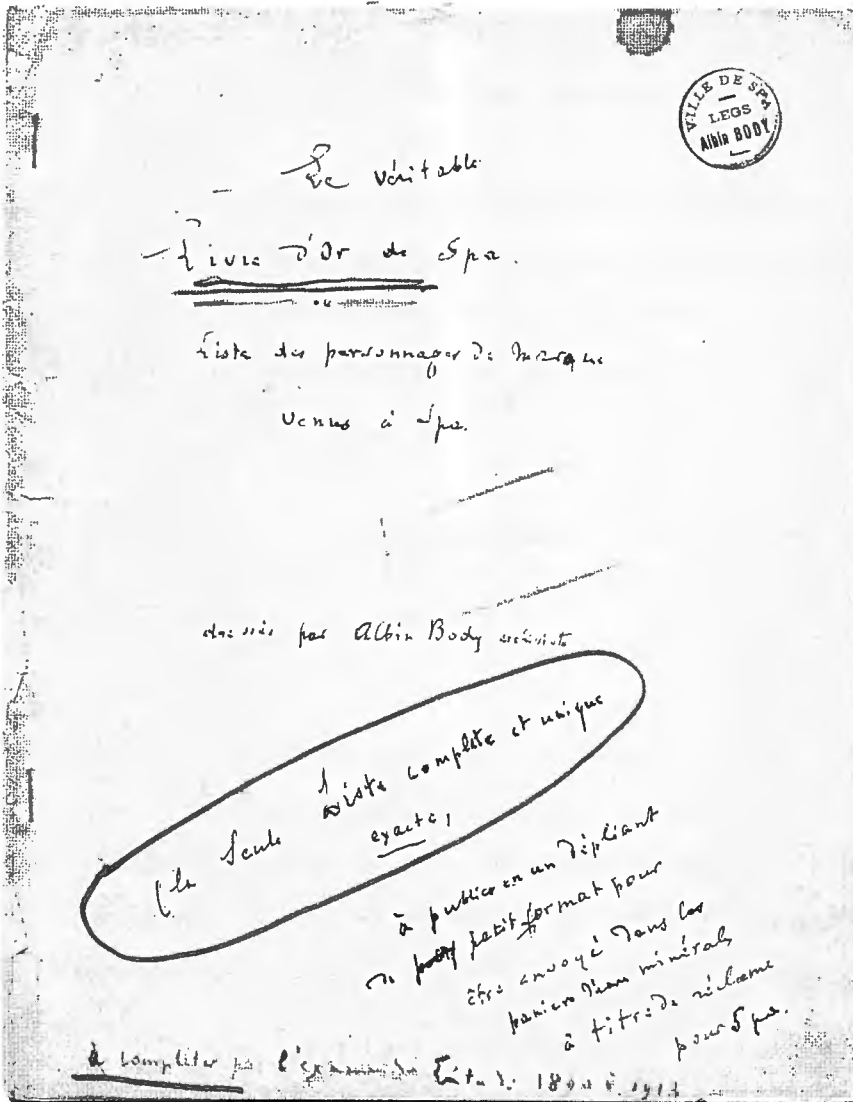 VILLE DE SPA
LEGS
Albin BODY
Le véritable
Livre d'Or de Spa.
ou
Liste des personnages de marque
venus à Spa.
dressée par Albin Body archiviste
(la seule Liste complète et unique
exacte,
à publier en un dépliant
de petit format pour
être envoyé dans les
paniers d'eau minérale
à titre de réclame
pour Spa.
à compléter par l'examen des